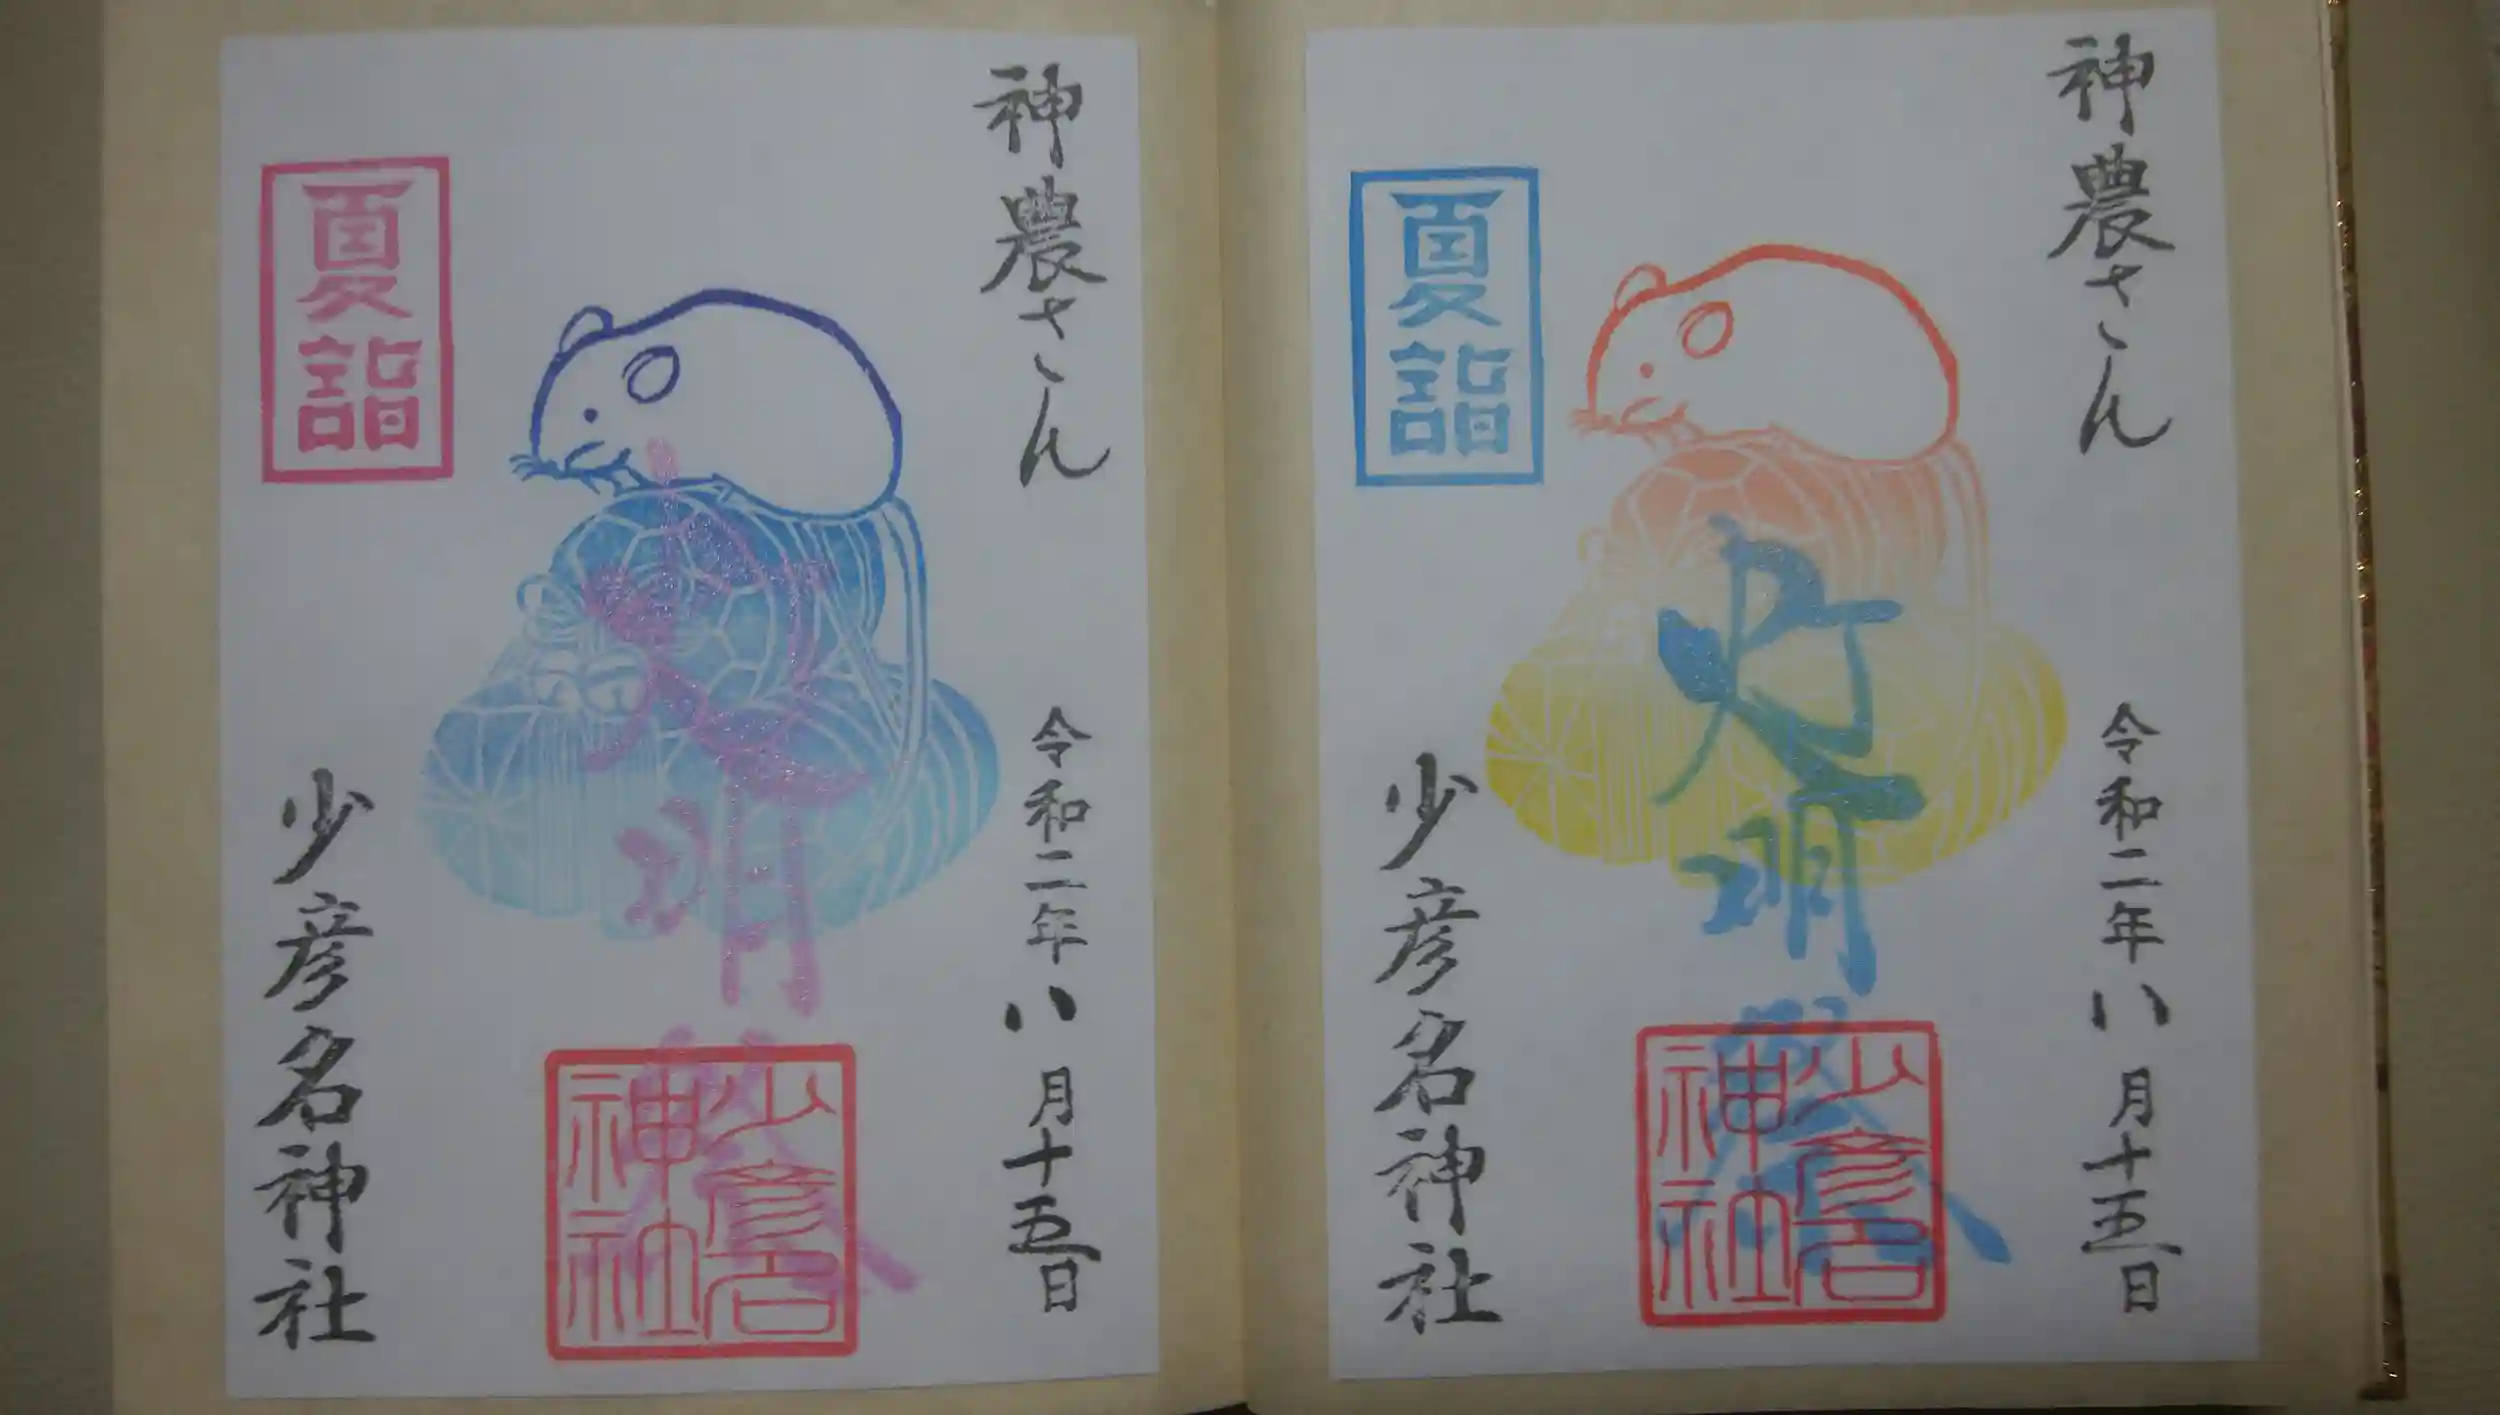 神農さん
令和二年八月十五日
献灯明祭
少彦名神社
夏詣
少彦名神社
神農さん
令和二年八月十五日
献灯明祭
少彦名神社
夏詣
少彦名神社